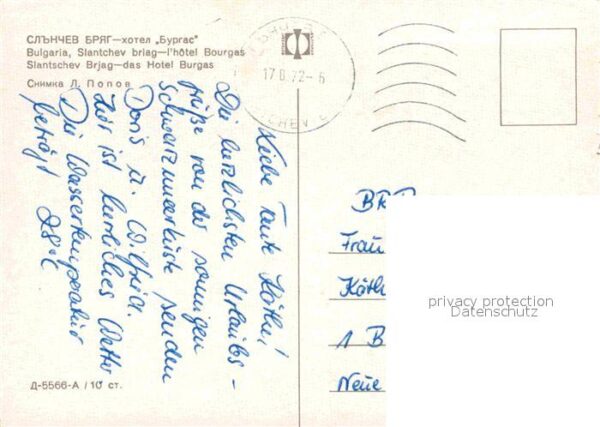 СЛЪНЧЕВ БРЯГ—хотел „Бургас"
Bulgaria, Slantchev briag—l'hôtel Bourgas
Slantschev Brjag—das Hotel Burgas
Снимка Л. Попов
17.8.72-6
Liebe Tante Käthe!
Die herzlichsten Urlaubs-
grüße von der sonnigen
Schwarzmeerküste senden
Doris u. Wilfried.
Hier ist herrliches Wetter
Die Wassertemperatur
beträgt 28°C
BRD
Frau
Käthe
1 B
Neue
privacy protection
Datenschutz
Д-5566-А / 10 ст.